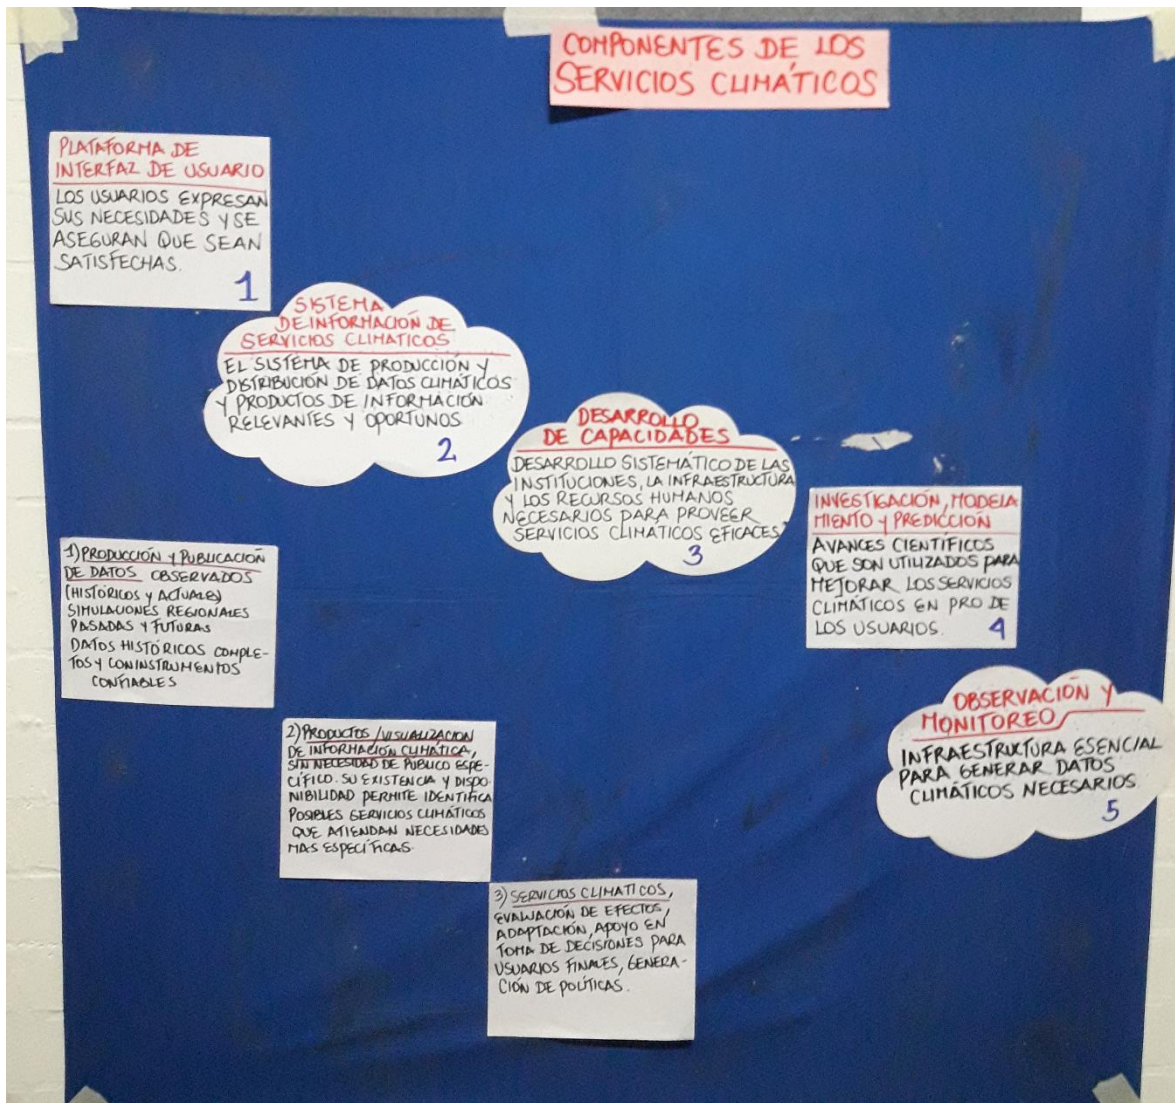 COMPONENTES DE LOS
SERVICIOS CLIMÁTICOS
PLATAFORMA DE
INTERFAZ DE USUARIO
LOS USUARIOS EXPRESAN
SUS NECESIDADES Y SE
ASEGURAN QUE SEAN
SATISFECHAS.
1
SISTEMA
DE INFORMACIÓN DE
SERVICIOS CLIMATICOS
EL SISTEMA DE PRODUCCIÓN Y
DISTRIBUCIÓN DE DATOS CLIMÁTICOS
Y PRODUCTOS DE INFORMACIÓN
RELEVANTES Y OPORTUNOS
2
DESARROLLO
DE CAPACIDADES
DESARROLLO SISTEMÁTICO DE LAS
INSTITUCIONES, LA INFRAESTRUCTURA
Y LOS RECURSOS HUMANOS
NECESARIOS PARA PROVEER
SERVICIOS CLIMATICOS EFICACES
3
INVESTIGACIÓN, MODELA
MIENTO Y PREDICCIÓN
AVANCES CIENTÍFICOS
QUE SON UTILIZADOS PARA
MEJORAR LOS SERVICIOS
CLIMÁTICOS EN PRO DE
LOS USUARIOS.
4
OBSERVACIÓN Y
MONITOREO
INFRAESTRUCTURA ESENCIAL
PARA GENERAR DATOS
CLIMÁTICOS NECESARIOS
5
1) PRODUCCIÓN Y PUBLICACIÓN
DE DATOS OBSERVADOS
(HISTÓRICOS Y ACTUALES)
SIMULACIONES REGIONALES
PASADAS Y FUTURAS
DATOS HISTÓRICOS COMPLE-
TOS Y CON INSTRUMENTOS
CONFIABLES
2) PRODUCTOS / VISUALIZACION
DE INFORMACIÓN CLIMÁTICA,
SIN NECESIDAD DE PÚBLICO ESPE-
CÍFICO. SU EXISTENCIA Y DISPO-
NIBILIDAD PERMITE IDENTIFICA
POSIBLES SERVICIOS CLIMÁTICOS
QUE ATIENDAN NECESIDADES
MAS ESPECÍFICAS.
3) SERVICIOS CLIMATICOS,
EVALUACIÓN DE EFECTOS,
ADAPTACIÓN, APOYO EN
TOMA DE DECISIONES PARA
USUARIOS FINALES, GENERA-
CIÓN DE POLÍTICAS.